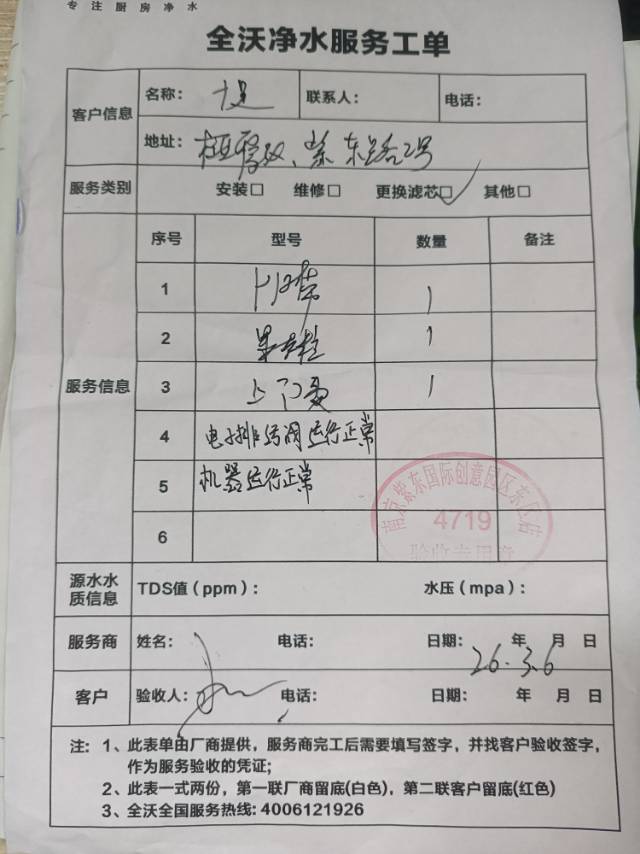 专注厨房净水
全沃净水服务工单
客户信息 名称： 联系人： 电话：
地址： 紫东路2号
服务类别 安装□ 维修□ 更换滤芯□ 其他□
服务信息 序号 型号 数量 备注
1 1
2 1
3 上门费 1
4 电子排污阀运行正常
5 机器运行正常
6
南京紫东国际创意园区东区店
4719
验收专用章
源水水质信息 TDS值（ppm）： 水压（mpa）：
服务商 姓名： 电话： 日期： 年 月 日
26.3.6
客户 验收人： 电话： 日期： 年 月 日
注： 1、此表单由厂商提供，服务商完工后需要填写签字，并找客户验收签字，
作为服务验收的凭证；
2、此表一式两份，第一联厂商留底(白色)，第二联客户留底(红色)
3、全沃全国服务热线: 4006121926